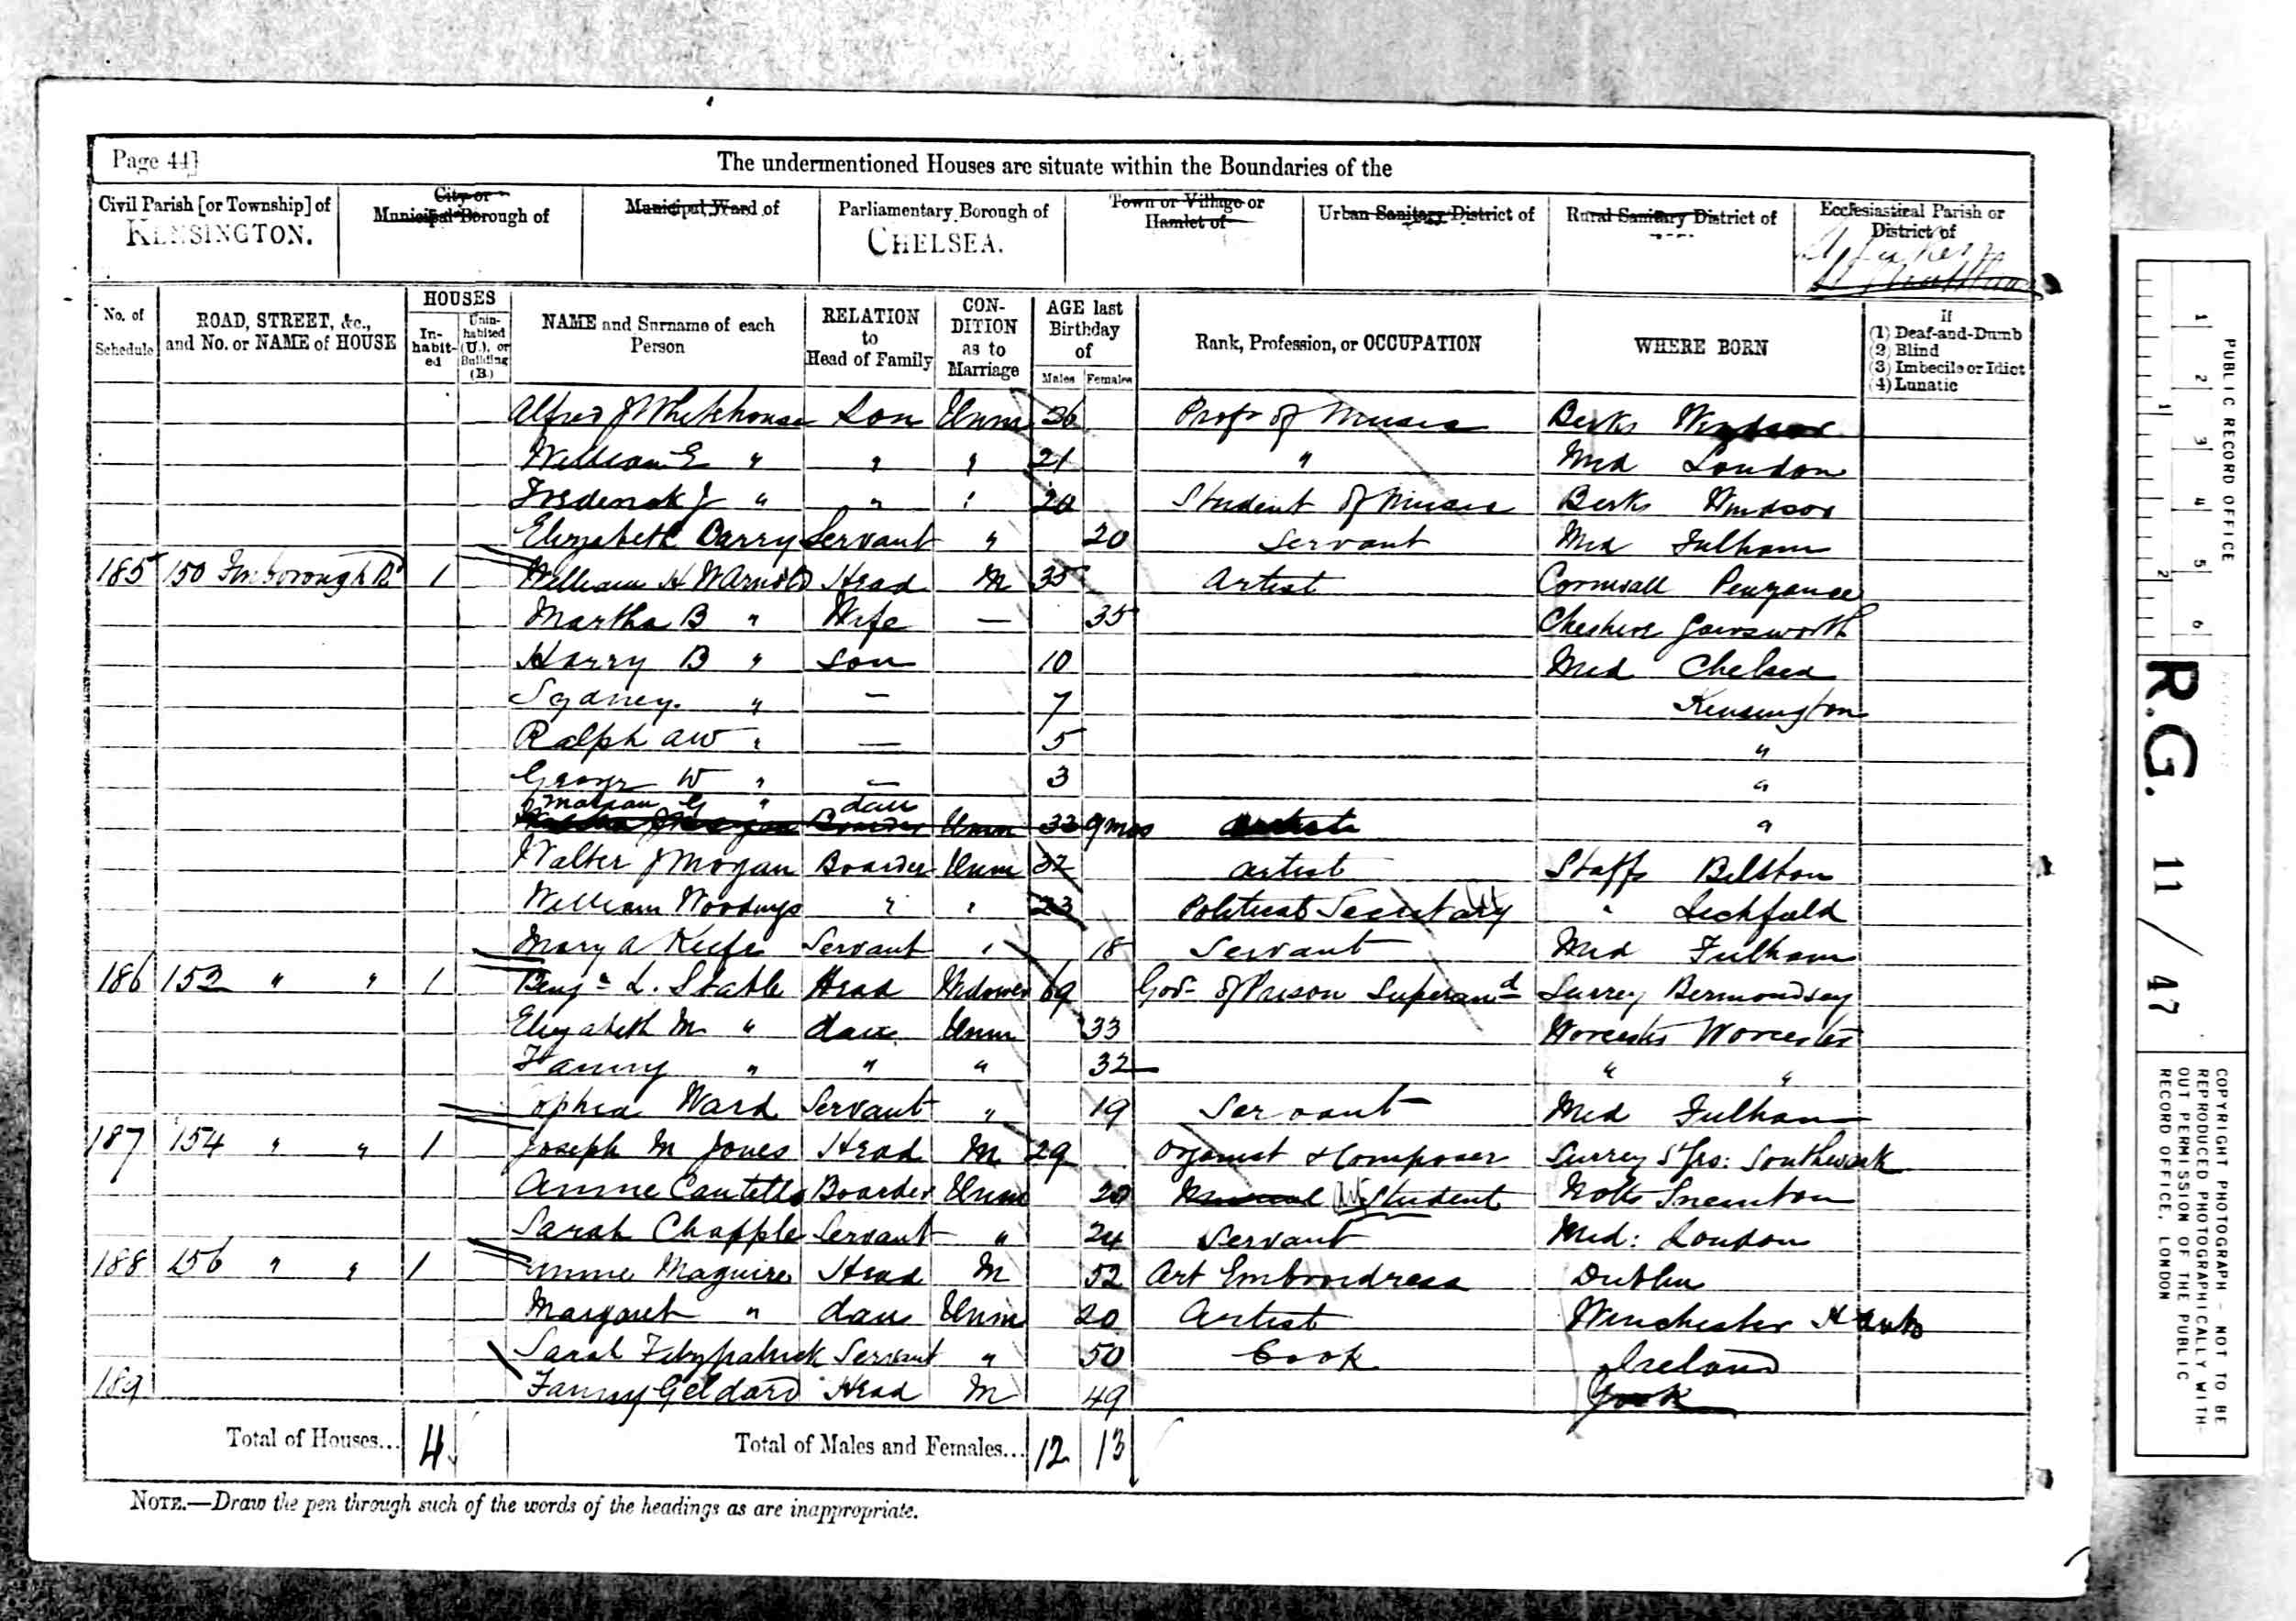 Page 44]
The undermentioned Houses are situate within the Boundaries of the
Civil Parish [or Township] of
KENSINGTON.
City or
Municipal Borough of
Municipal Ward of
Parliamentary Borough of
CHELSEA.
Town or Village or
Hamlet of
Urban Sanitary District of
Rural Sanitary District of
Ecclesiastical Parish or
District of
No. of
Schedule
ROAD, STREET, &c.,
and No. or NAME of HOUSE
HOUSES
In-
habit-
ed
Unin-
habited
(U.), or
Building
(B.)
NAME and Surname of each
Person
RELATION
to
Head of Family
CON-
DITION
as to
Marriage
AGE last
Birthday
of
Males
Females
Rank, Profession, or OCCUPATION
WHERE BORN
If
(1) Deaf-and-Dumb
(2) Blind
(3) Imbecile or Idiot
(4) Lunatic
Alfred J Whitehouse Son Unm 26 Profr of Music Berks Windsor
William E " " " 21 " Mid London
Frederick J " " " 20 Student of Music Berks Windsor
Elizabeth Barry Servant " 20 Servant Mid Fulham
185 150 Finborough Rd 1 William H W Arnold Head M 35 Artist Cornwall Penzance
Martha B " Wife — 35 Cheshire Gawsworth
Harry B " Son 10 Mid Chelsea
Sydney " — 7 Kensington
Ralph A W " — 5 "
George W " — 3 "
G " dau
Boarder Unm 33 9 mos Artist "
Walter J Morgan Boarder Unm 32 Artist Staffs Bilston
William Woodings " " 23 Political Secretary " Lichfield
Mary A Keefe Servant " 18 Servant Mid Fulham
186 152 " " 1 Benjn L. Stable Head Widower 69 Govr of Prison Superand Surrey Bermondsey
Elizabeth M " daur Unm 33 Worcester Worcester
Fanny " " " 32 " "
Sophia Ward Servant " 19 Servant Mid Fulham
187 154 " " 1 Joseph M Jones Head M 29 Organist & Composer Surrey St Geo: Southwark
Annie Cantello Boarder Unm 20 Musical Student Notts Sneinton
Sarah Chapple Servant " 24 Servant Mid: London
188 156 " " 1 Annie Maguire Head M 52 Art Embroidress Dublin
Margaret " dau Unm 20 Artist Winchester Hants
Sarah Fitzpatrick Servant " 50 Cook Ireland
189 Fanny Geldard Head M 49 York
Total of Houses... 4
Total of Males and Females... 12 13
NOTE.—Draw the pen through such of the words of the headings as are inappropriate.
1
2
3
4
5
6
1
2
PUBLIC RECORD OFFICE
R.G. 11 / 47
COPYRIGHT PHOTOGRAPH – NOT TO BE
REPRODUCED PHOTOGRAPHICALLY WITH-
OUT PERMISSION OF THE PUBLIC
RECORD OFFICE, LONDON